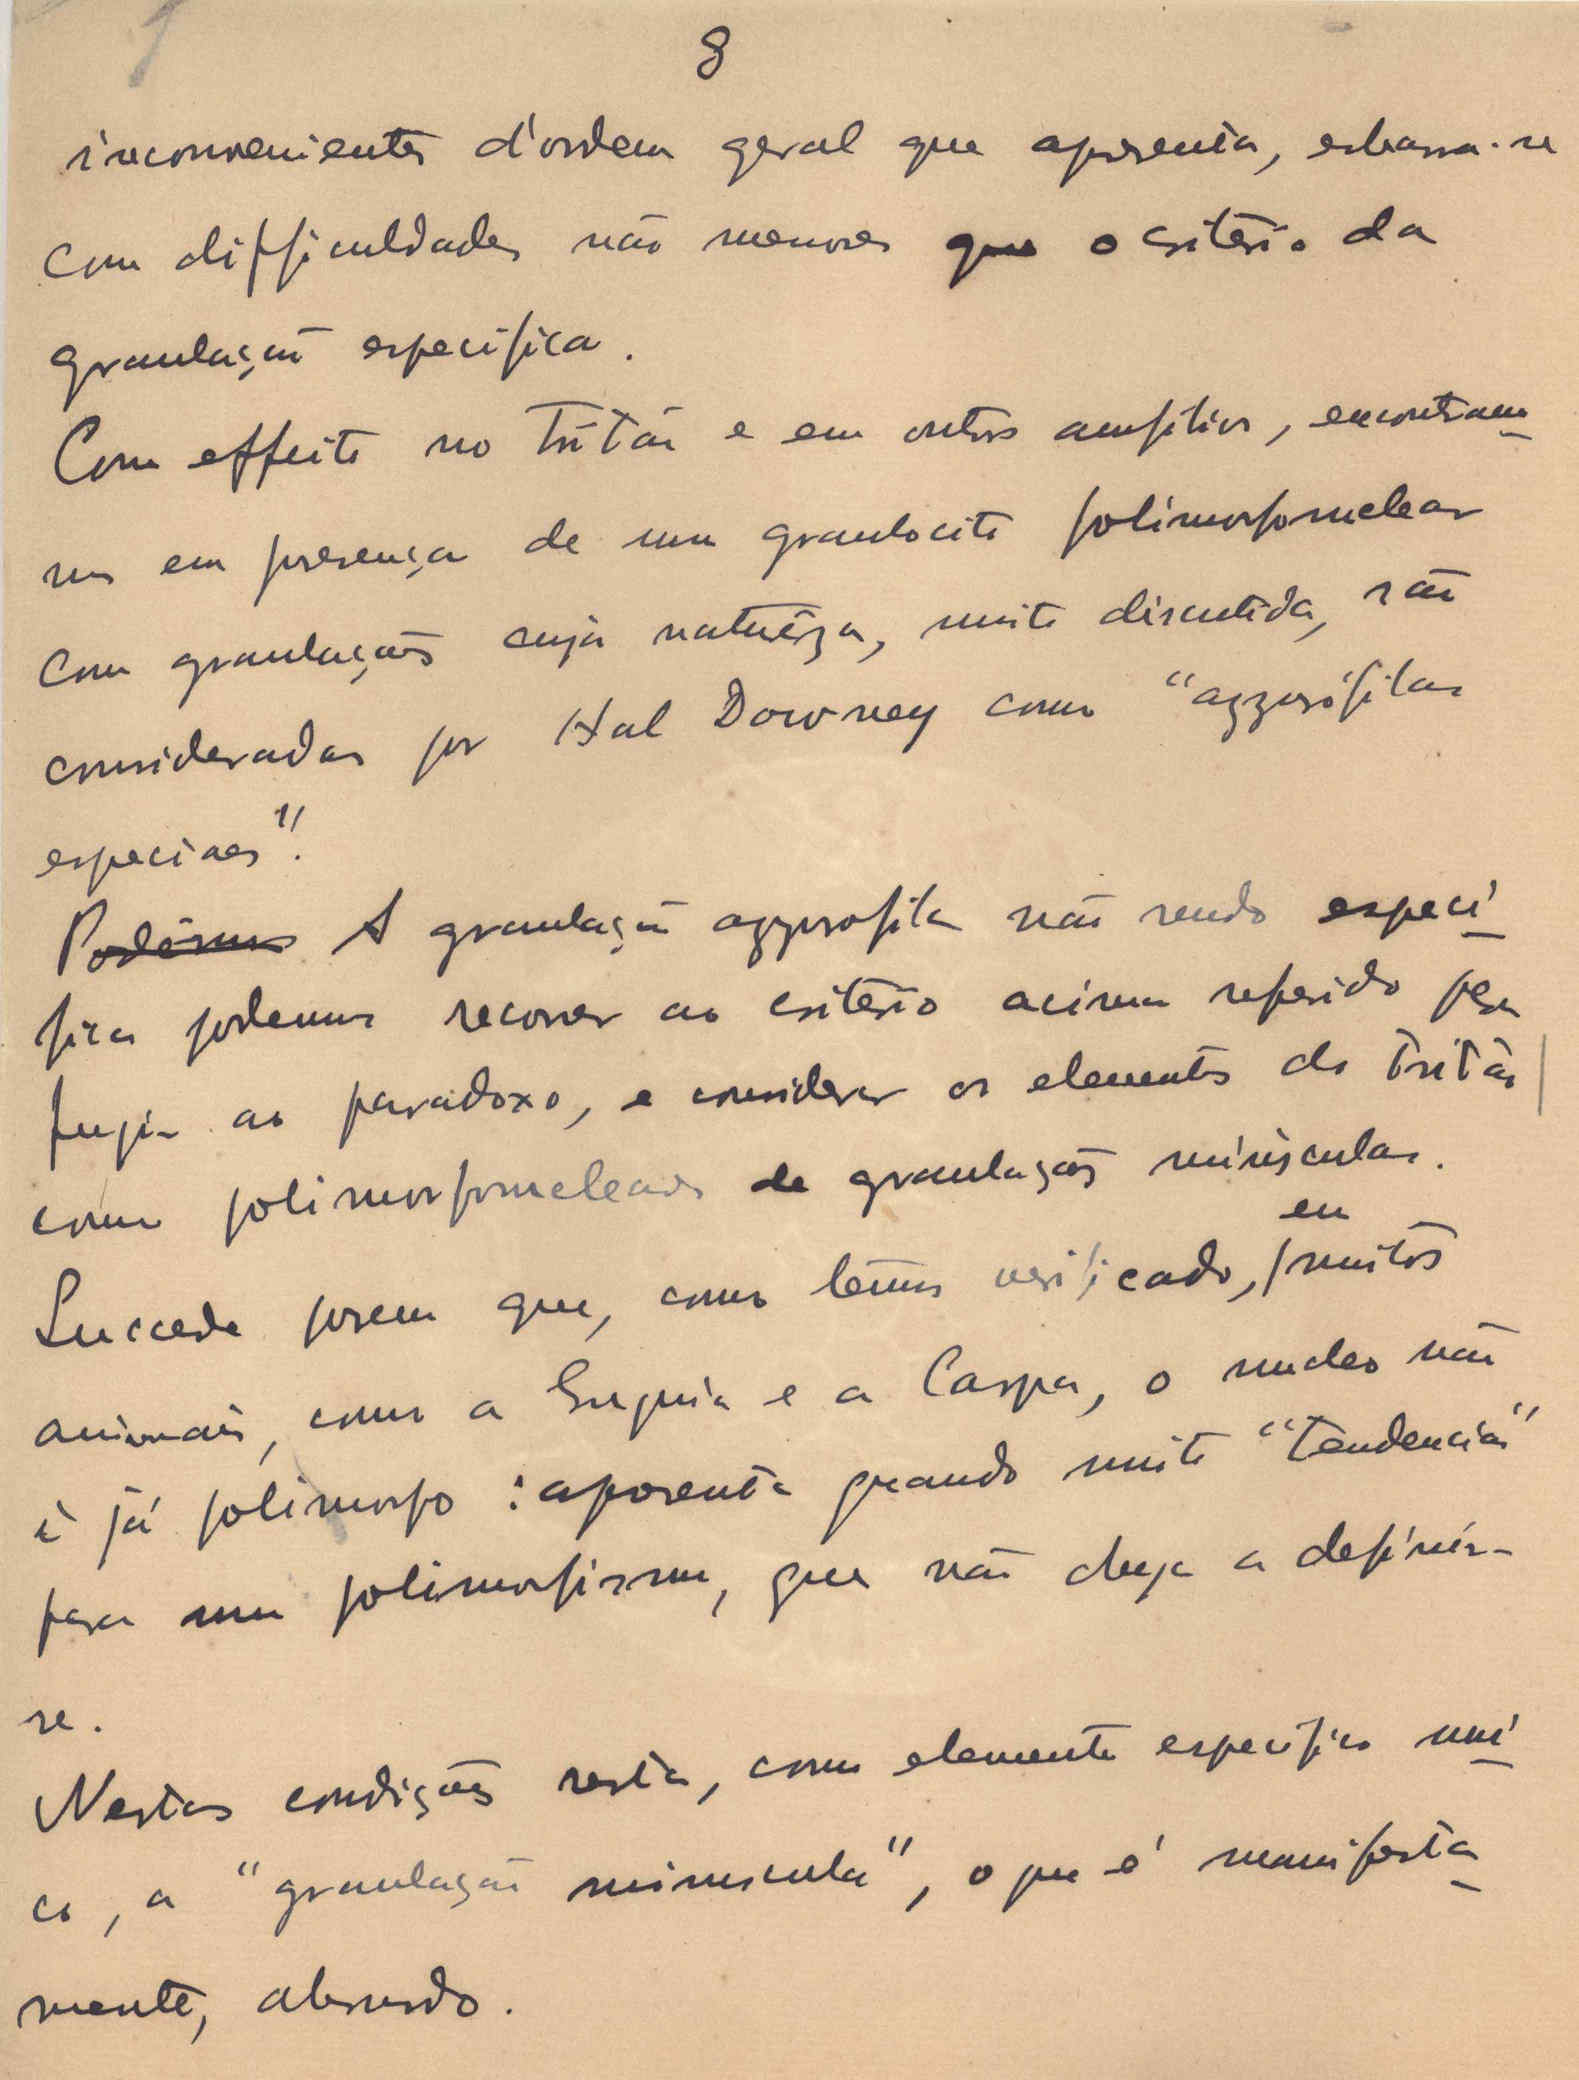 8
inconvenientes d'ordem geral que apresenta, esbarra-se
com difficuldades não menores que o critério da
granulação especifica.
Com effeito no Tritão e em outros anfibios, encontramo
nos em presença de um granulocito polimorfonuclear
com granulações cuja naturêza, muito discutida, são
consideradas por Hal Downey como "azzurófilas
especiaes".
Podêmos A granulação azzurofila não sendo especi
fica podemos recorrer ao critério acima referido para
fugir ao paradoxo, e considerar os elementos do Tritão
como polimorfonucleares de granulações minúsculas.
Succede porem que, como têmos verificado, em muitos
animais, como a Enguia e a Carpa, o nucleo não
é já polimorfo: apresenta quando muito "tendencias"
para um polimorfismo, que não chega a definir-
se.
Nestas condições resta, como elemento especifico uni
co, a "granulação minuscula", o que é manifesta
mente, absurdo.